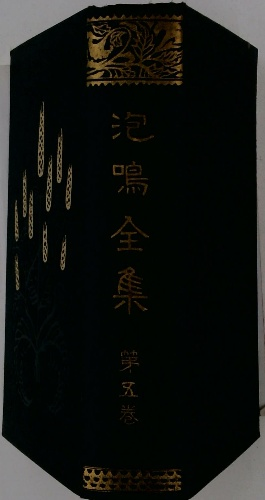 泡鳴全集
第五巻